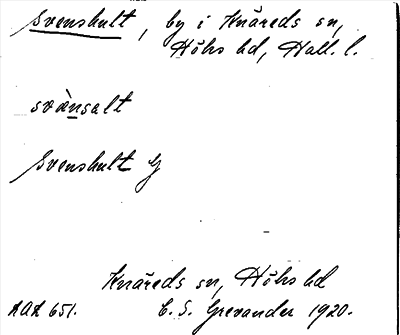 Svenshult, by i Knäreds sn,
Höks hd, Hall. l.
svänsalt
Svenshult
Knäreds sn, Höks hd
AAA 651. E. S. Grevander 1920.